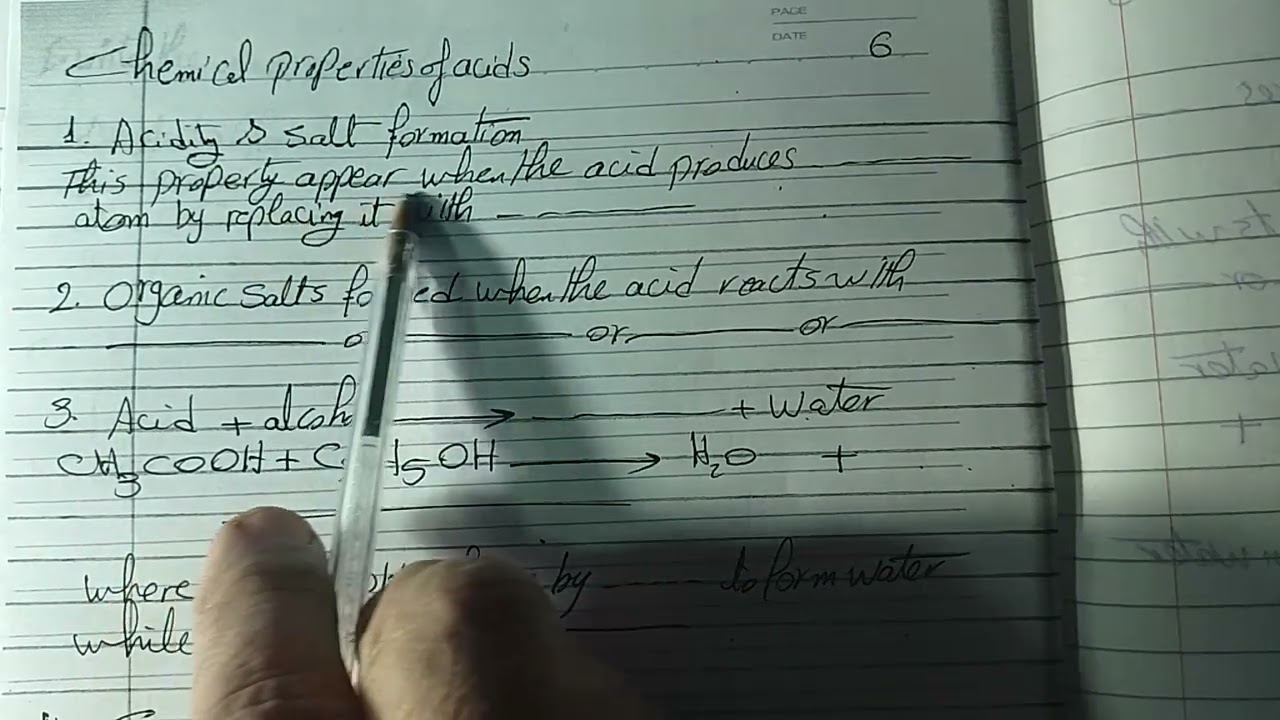 PAGE
DATE 6
Chemical properties of acids
1. Acidity & salt formation
This property appear when the acid produces
atom by replacing it with
2. Organic salts ed when the acid reacts with
or or
3. Acid + → + Water
CH3COOH + C 5OH → H2O +
where by to form water
while